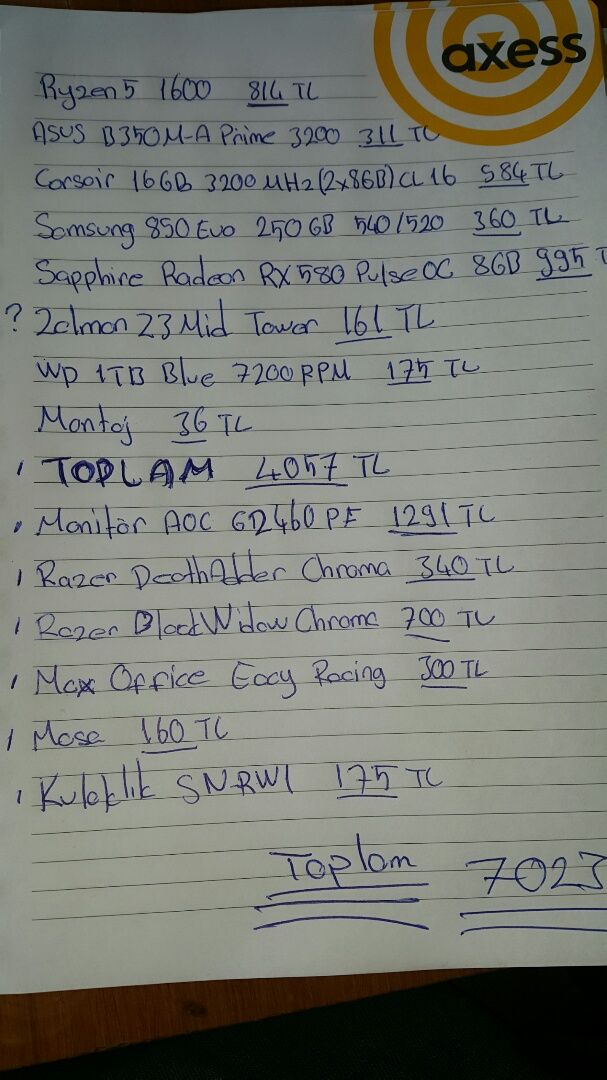 axess
Ryzen 5 1600 814 TL
ASUS B350M-A Prime 3200 311 TL
Corsair 16GB 3200 MHz (2x8GB) CL16 584 TL
Samsung 850 Evo 250 GB 540/520 360 TL
Sapphire Radeon RX 580 Pulse OC 8GB 995 T
? Zalman Z3 Mid Tower 161 TL
WD 1TB Blue 7200RPM 175 TL
Montaj 36 TL
TOPLAM 4057 TL
Monitör AOC G2460PF 1291 TL
Razer DeathAdder Chroma 340 TL
Razer BlackWidow Chroma 700 TL
Max Office Eacy Racing 300 TL
Masa 160 TL
Kulaklık SNRW1 175 TL
Toplam 7023